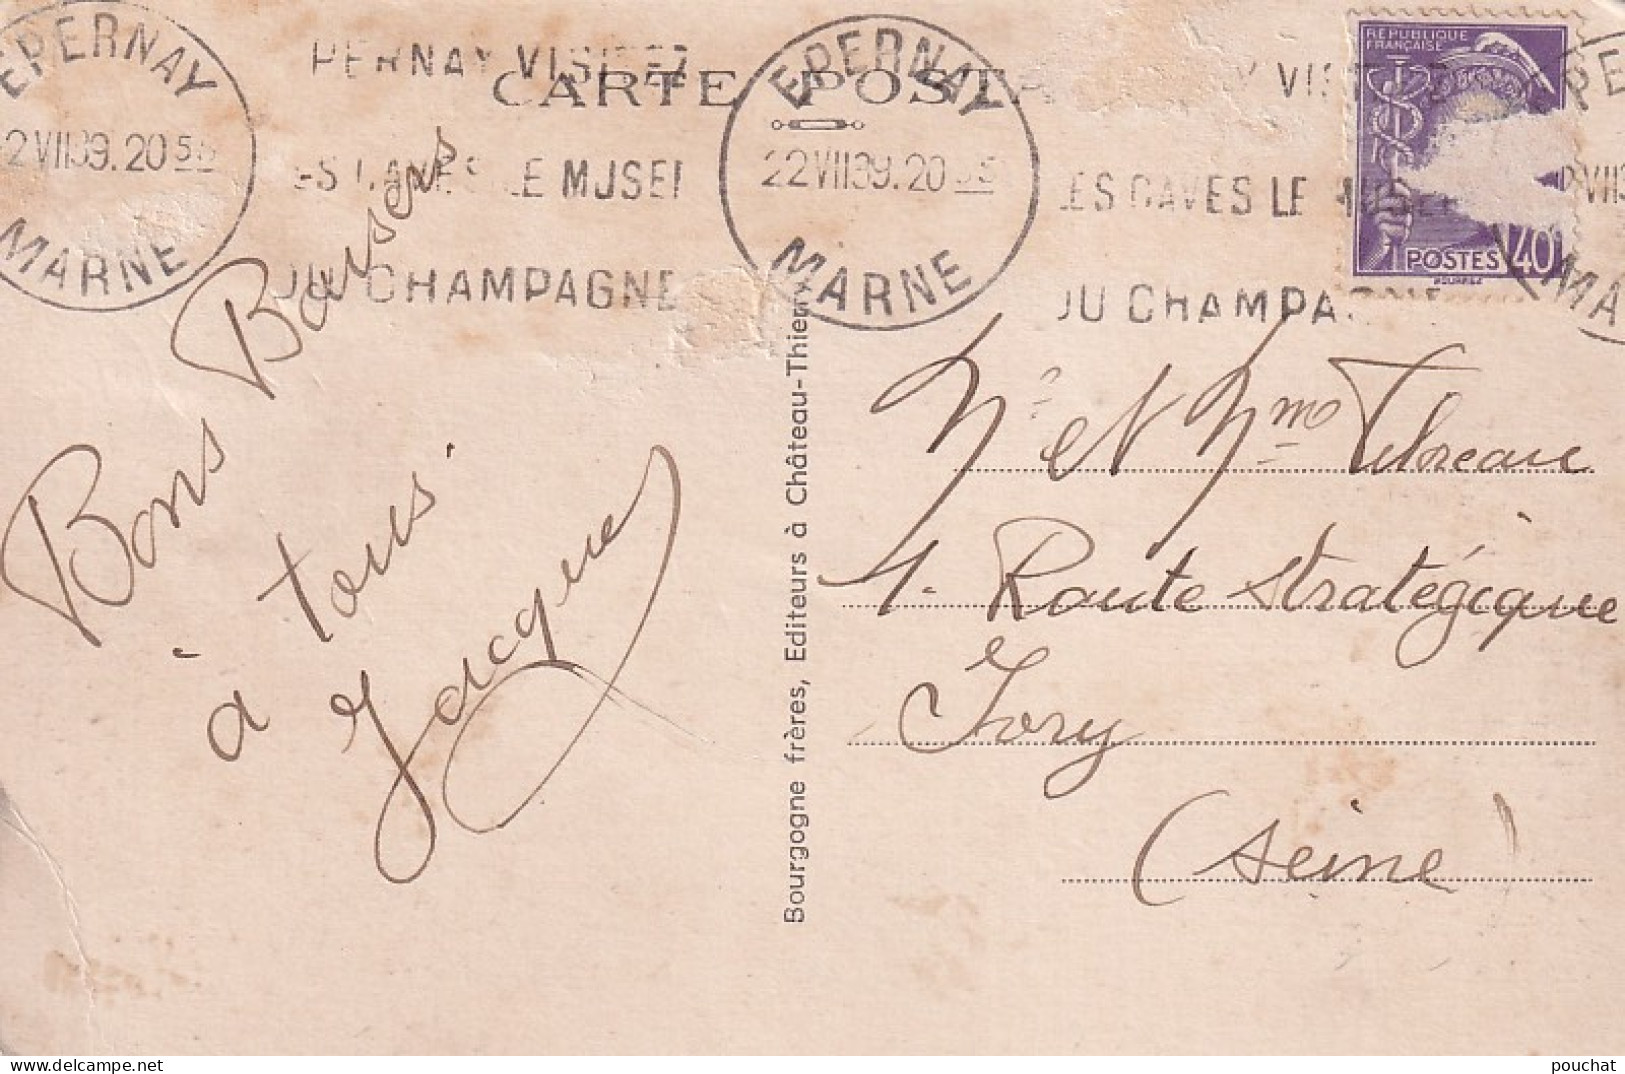 EPERNAY
22 VII 39. 20 55
MARNE
PERNAY VISITEZ
ES CAVES LE MUSEE
DU CHAMPAGNE
CARTE POSTA
EPERNAY
22 VII 39. 20 55
MARNE
Y VISITE
LES CAVES LE MUSEE
DU CHAMPAGNE
RÉPUBLIQUE
FRANÇAISE
POSTES 40
Bons Baisers
à tous
Jacques
Bourgogne frères, Editeurs à Château-Thierry
Mr et Mme
1. Route Stratégique
Ivry
(Seine)
pouchat